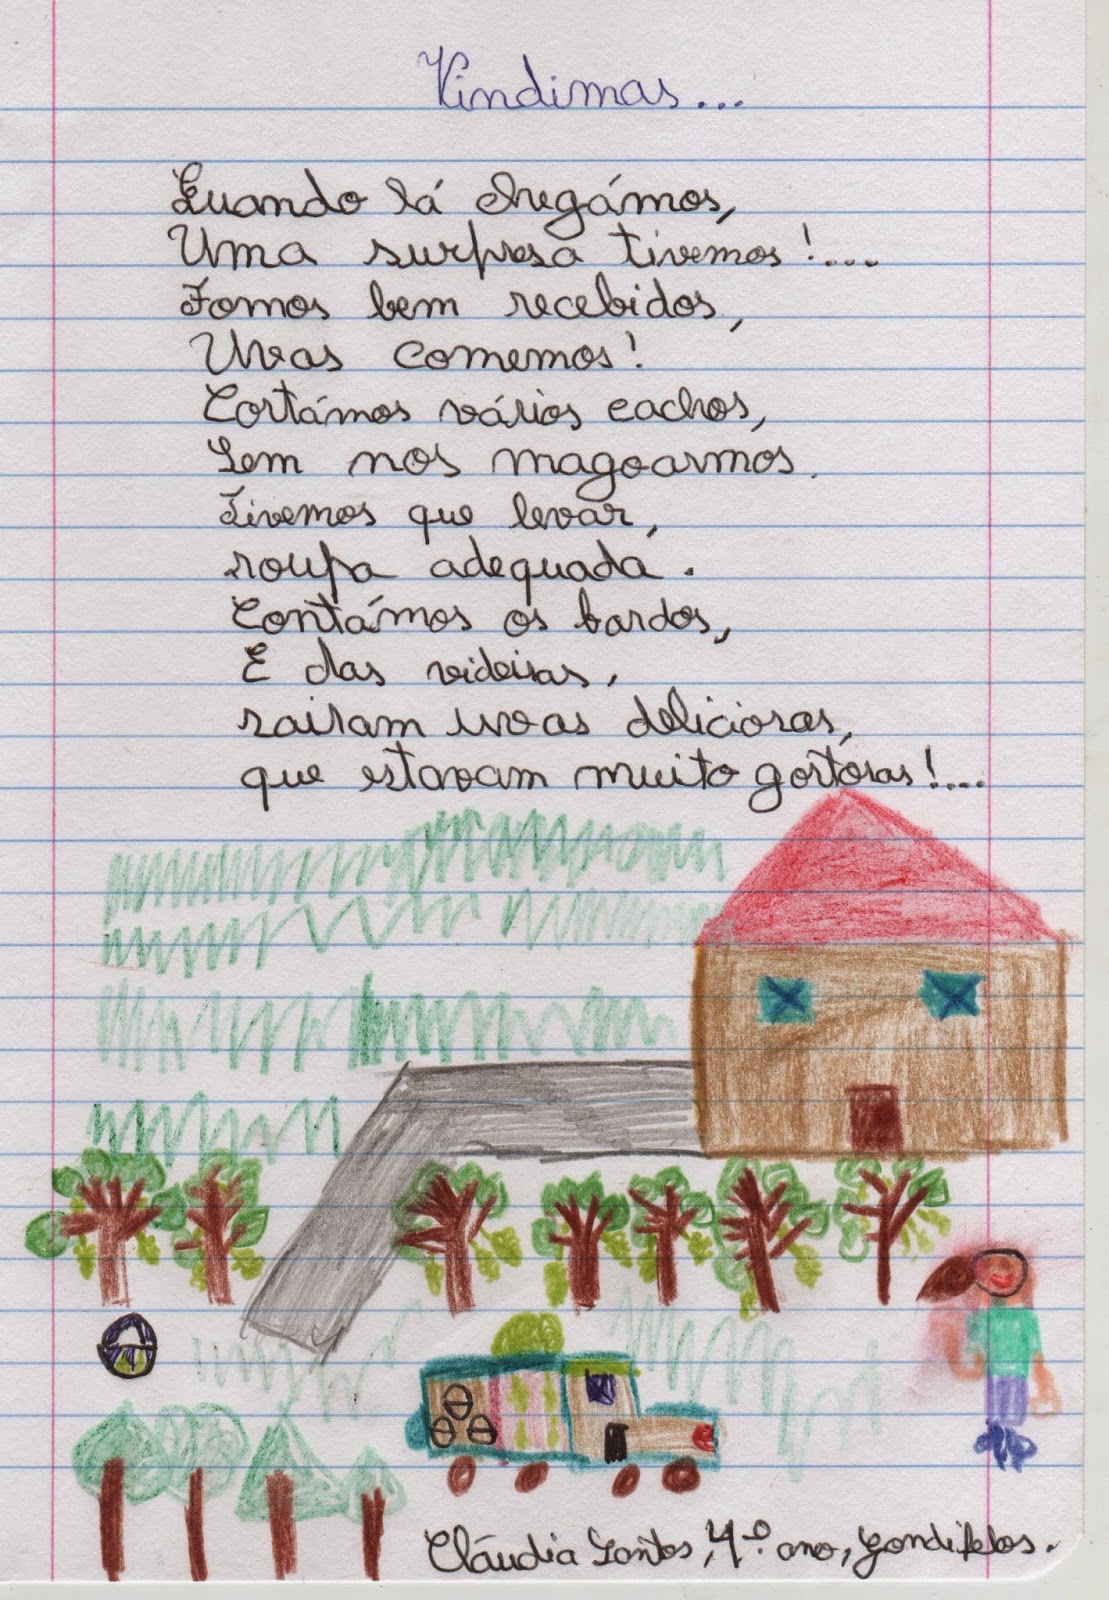 Vindimas...
Quando lá chegámos,
Uma surpresa tivemos!....
Fomos bem recebidos,
Uvas comemos!
Cortámos vários cachos,
Sem nos magoarmos.
Tivemos que levar,
roupa adequada.
Contámos os bardos,
E das videiras,
sairam uvas deliciosas,
que estavam muito gostosas!....
Cláudia Santos, 4.º ano, Gondifelos.